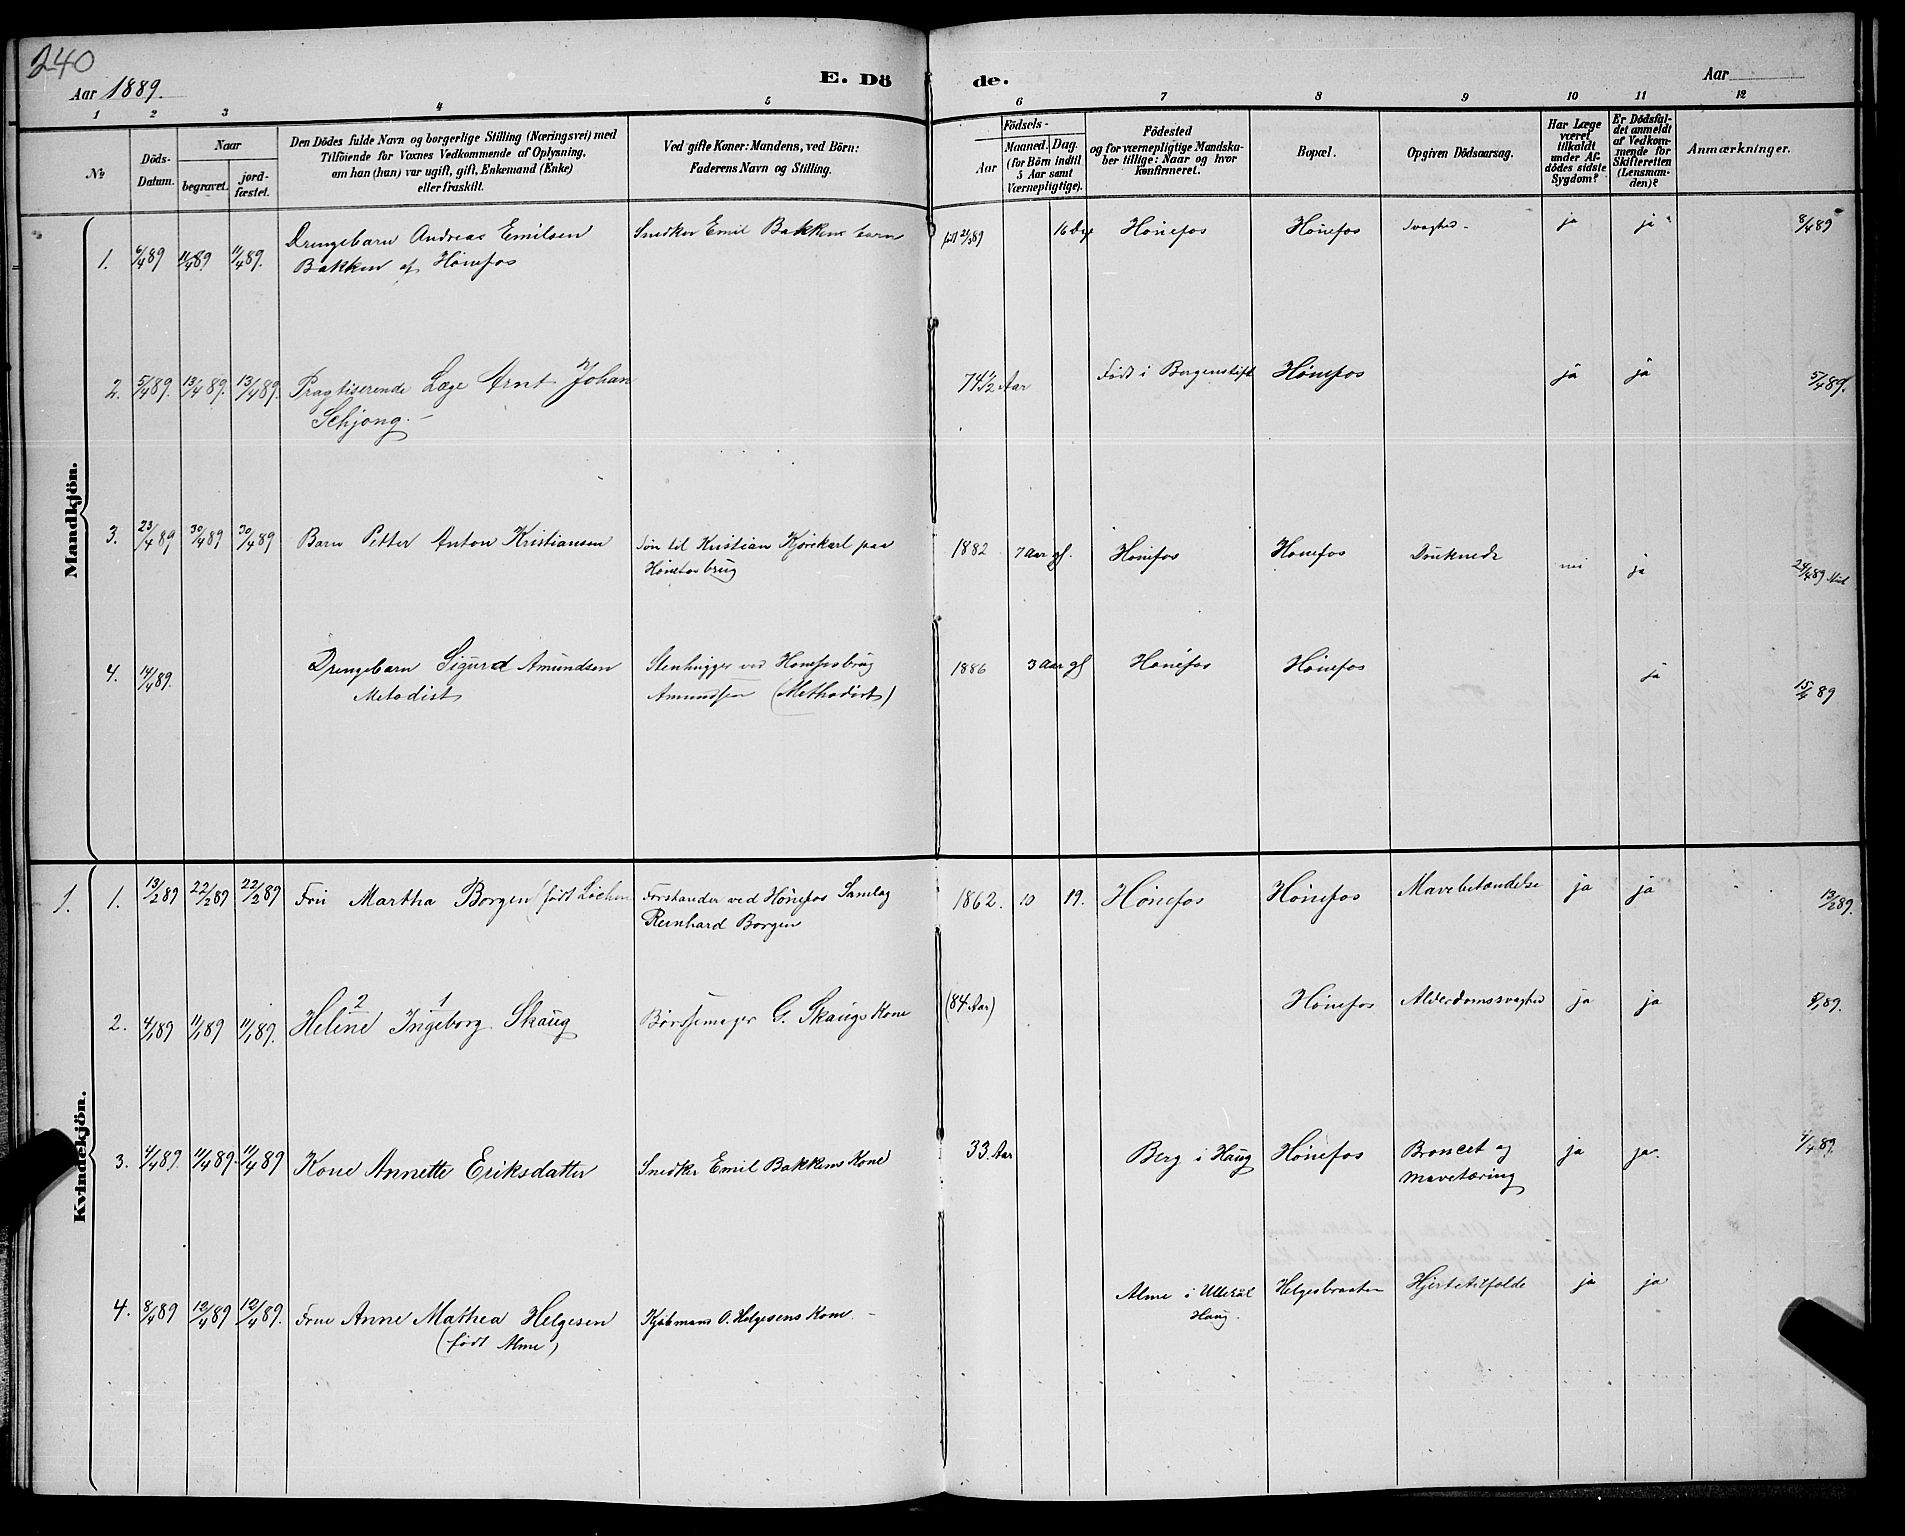 240
Aar 1889.
E. Dö de.
Aar
1 2 3 4 5 6 7 8 9 10 11 12
No
Döds-Datum.
Naar
begravet.
jord-fæstet.
Den Dödes fulde Navn og borgerlige Stilling (Næringsvei) med
Tilföiende for Voxnes Vedkommende af Oplysning,
om han (hun) var ugift, gift, Enkemand (Enke)
eller fraskilt.
Ved gifte Koner: Mandens, ved Börn:
Faderens Navn og Stilling.
Födsels-
Aar
Maaned. Dag.
(for Börn indtil
5 Aar samt
Værnepligtige).
Födested
og for værnepligtige Mandska-
ber tillige: Naar og hvor
konfirmeret.
Bopæl.
Opgiven Dödsaarsag.
Har Læge
været
tilkaldt
under Af-
dödes sidste
Sygdom?
Er Dödsfal-
det anmeldt
af Vedkom-
mende for
Skifteretten
(Lensman-
den)?
Anmærkninger.
Mandkjön.
1. 6/4 89 11/4 89 11/4 89. Drengebarn Andreas Emilsen Snedker Emil Bakkens barn 21/3 89 16 Dge Hønefos Hønefos Svaghed - ja ja 8/4 89
Bakken af Hønefos
2. 5/4 89. 13/4 89. 13/4 89. Pragtiserende Læge Arnt Johan 74 1/2 Aar Født i Bergenstift Hønefos ja ja 5/4 89.
Schjong. -
3. 23/4 89, 30/4 89 30/4 89 Barn Petter Anton Kristiansen Søn til Kristian Kjørekarl paa 1882 7 Aar gl. Hønefos Hønefos Druknede nei ja 24/4 89
Hønefosbrug
4. 14/4 89. Drengebarn Sigurd Amundsen Stenhugger ved Hønefosbrug 1886 3 Aar gl Hønefos Hønefos ja 15/4 89
Metodist Amundsen (Methodist)
Kvindekjön.
1. 1. 13/2 89 22/2 89 22/2 89 Fru Martha Borgen (født Lochen Forstander ved Hønefos Samlag 1862. 10 19. Hønefos Hønefos Mavebetændelse ja ja 13/2 89.
Reinhard Borgen
2 1
2. 4/1 89 11/1 89 11/1 89. Helene Ingeborg Skaug Børssemager G. Skaugs Kone (84 Aar) Hønefos Alderdomssvaghed ja ja 5/1 89.
3. 4/4 89. 11/4 89. 11/4 89 Kone Annette Eriksdatter Snedker Emil Bakkens Kone 33 Aar Berg i Haug Hønefos Broncet og ja ja. 4/4 89.
Mavetæring
4. 8/4 89 12/4 89 12/4 89. Frue Anne Mathea Helgesen Kjøbmans O. Helgesens Kone - Alme i Ullerål Helgesbraaten Hjertetilfælde ja ja
(født Alme) Haug.